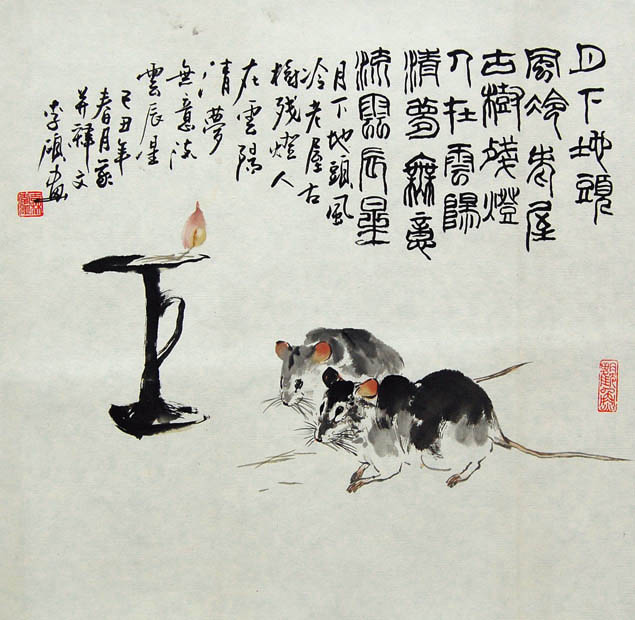 月下地頭
風冷老屋
古樹殘燈
人在雲陽
清夢無意
流雲辰星
月下地頭風
冷老屋古
樹殘燈人
在雲陽
清夢
無意流
雲辰星
己丑年
春月篆
并釋文
李畫